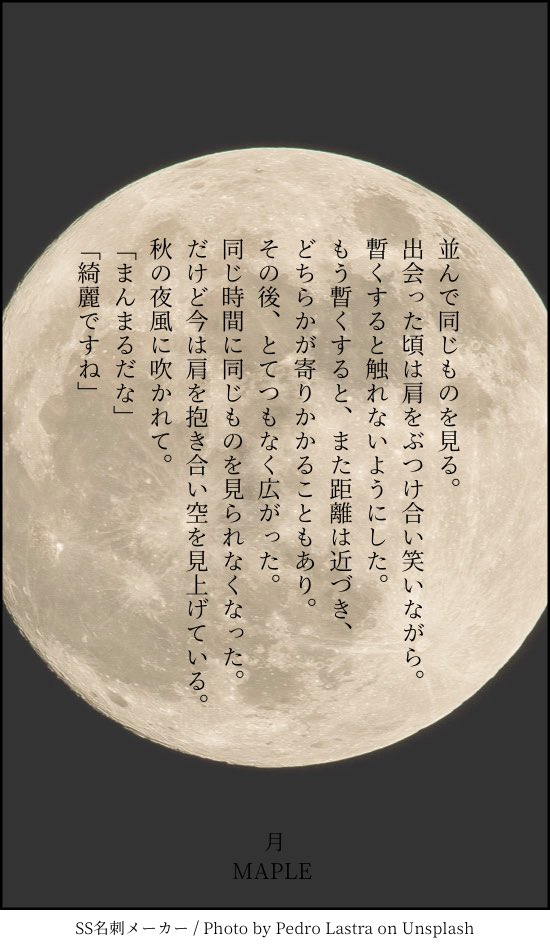 並んで同じものを見る。
出会った頃は肩をぶつけ合い笑いながら。
暫くすると触れないようにした。
もう暫くすると、また距離は近づき、
どちらかが寄りかかることもあり。
その後、とてつもなく広がった。
同じ時間に同じものを見られなくなった。
だけど今は肩を抱き合い空を見上げている。
秋の夜風に吹かれて。
「まんまるだな」
「綺麗ですね」
月
MAPLE
SS名刺メーカー / Photo by Pedro Lastra on Unsplash